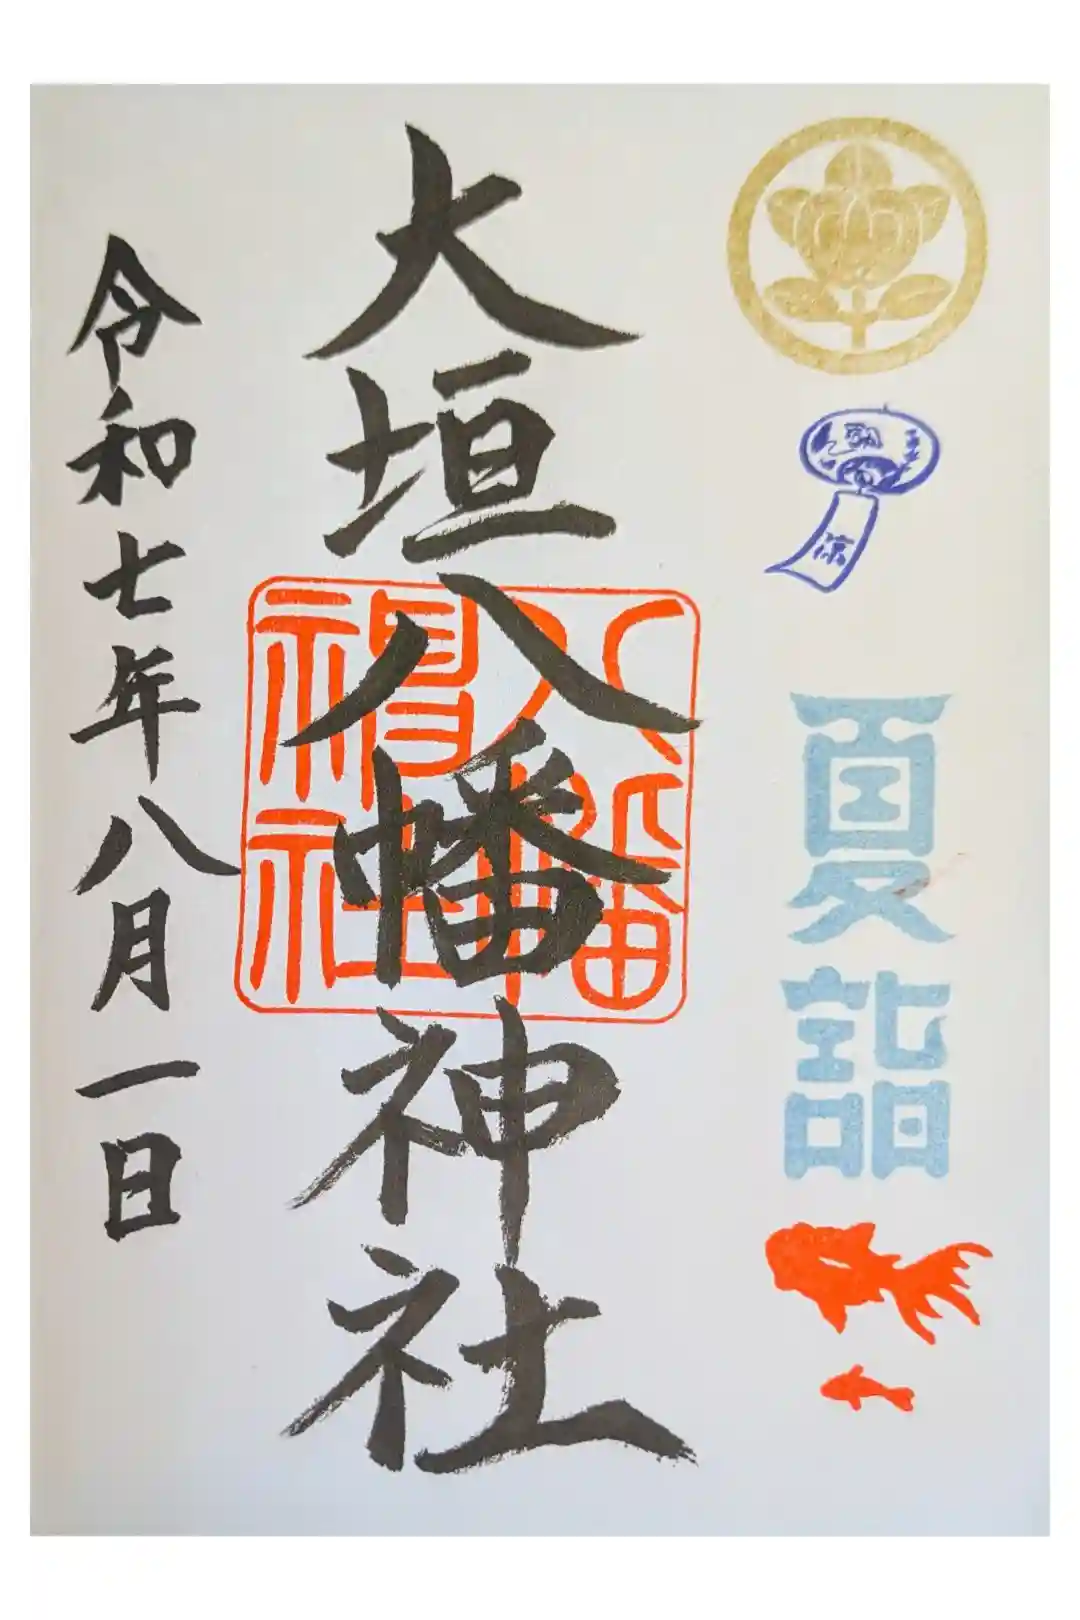 涼
夏詣
大垣八幡神社
八幡神社
令和七年八月一日